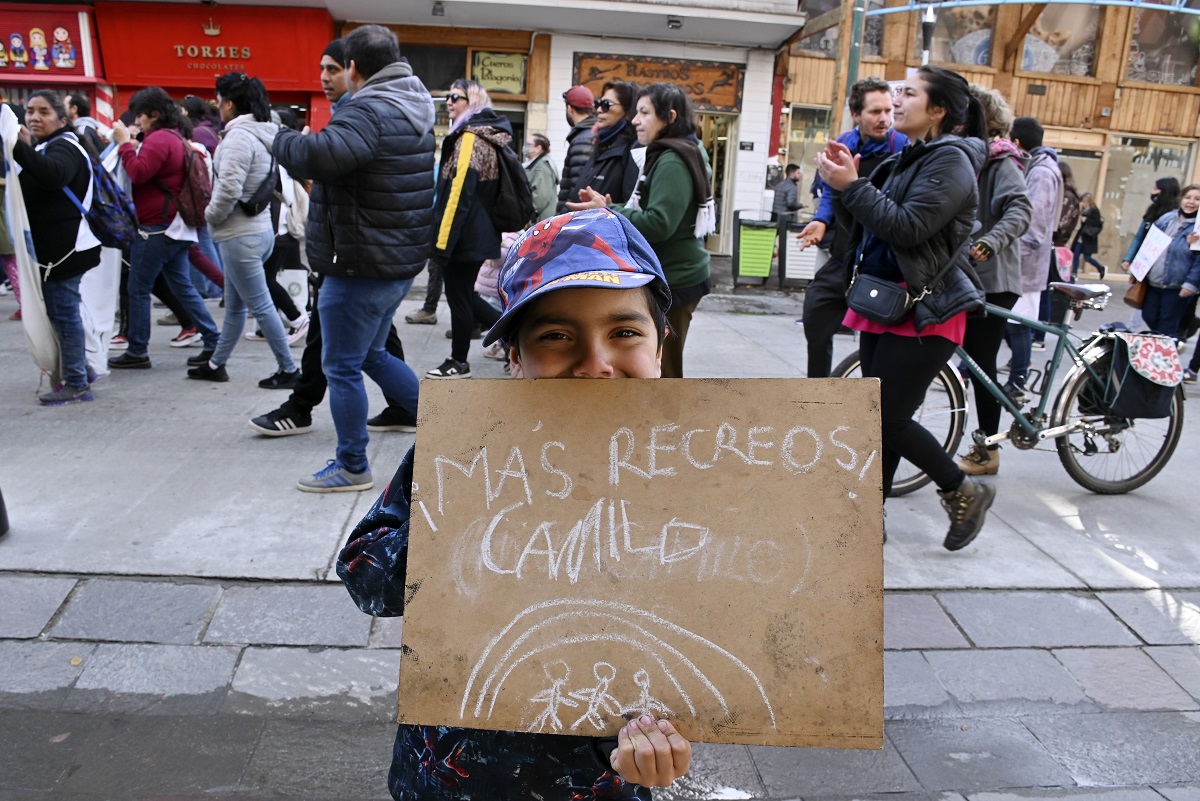 TORRES
CHOCOLATES
Cueros de
Patagonia
RASTROS
¡MÁS RECREOS!
CAMILO